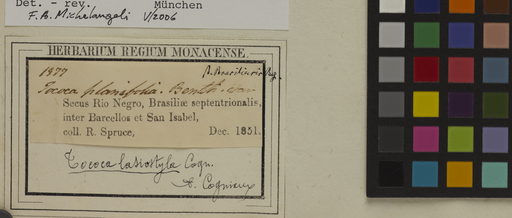 Det. - rev. München
F. A. Michelangeli V/2006
HERBARIUM REGIUM MONACENSE.
1877
Tococa planifolia. Benth.
Secus Rio Negro, Brasiliæ septentrionalis,
inter Barcellos et San Isabel,
coll. R. Spruce, Dec. 1851.
Tococa lasiostyla Cogn.
A. Cogniaux